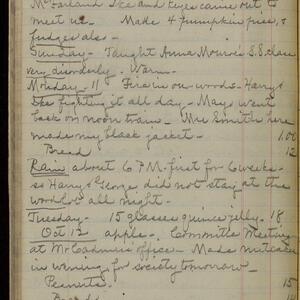 McFarland Ike and Keyes came out, to
meet us. Made 4 pumpkin pies, &
fudges also -
Sunday - Taught Anna Moure's S.S. class
very disorderly. Warm -
Monday - 11 Fire in our woods - Harry &
Ike fighting it all day - Mays went
back on noon train - Mrs Smith here
made my black jacket - 1.00
Bread 12
Rain about 6 P.M. first for 6 weeks -
so Harry & George did not stay at the
woodlot all night -
Tuesday - 15 glasses quince jelly - 18
Oct 12 apple - Committee Meeting
at McCadmus' office - Made
in evening, for society tomorrow -
Peanuts 15